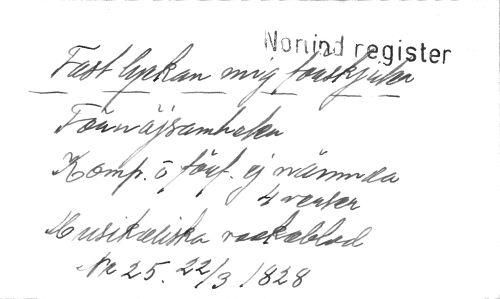 Norlind register
Fast lyckan mig förskjuter
Förnöjsamheten
Komp. o förf. ej nämnda
4 verser
Musikaliska veckoblad
Nr 25. 22/3 1828